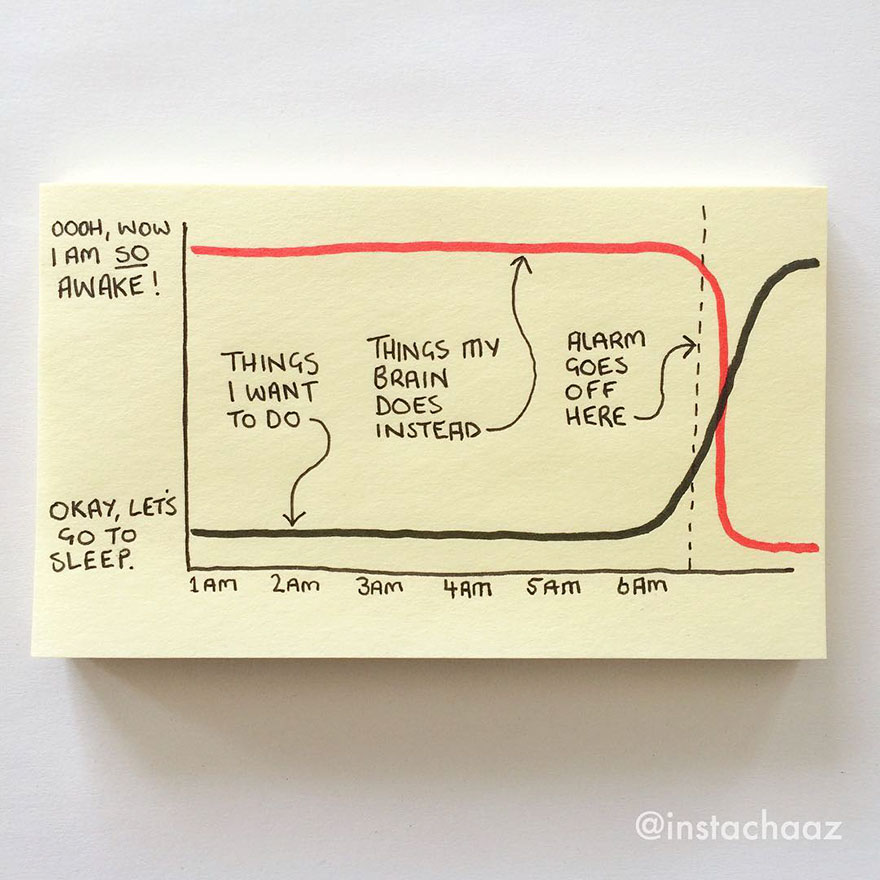 OOOH, WOW
I AM SO
AWAKE!
THINGS
I WANT
TO DO
THINGS MY
BRAIN
DOES
INSTEAD
ALARM
GOES
OFF
HERE
OKAY, LET'S
GO TO
SLEEP.
1AM 2AM 3AM 4AM 5AM 6AM
@instachaaz